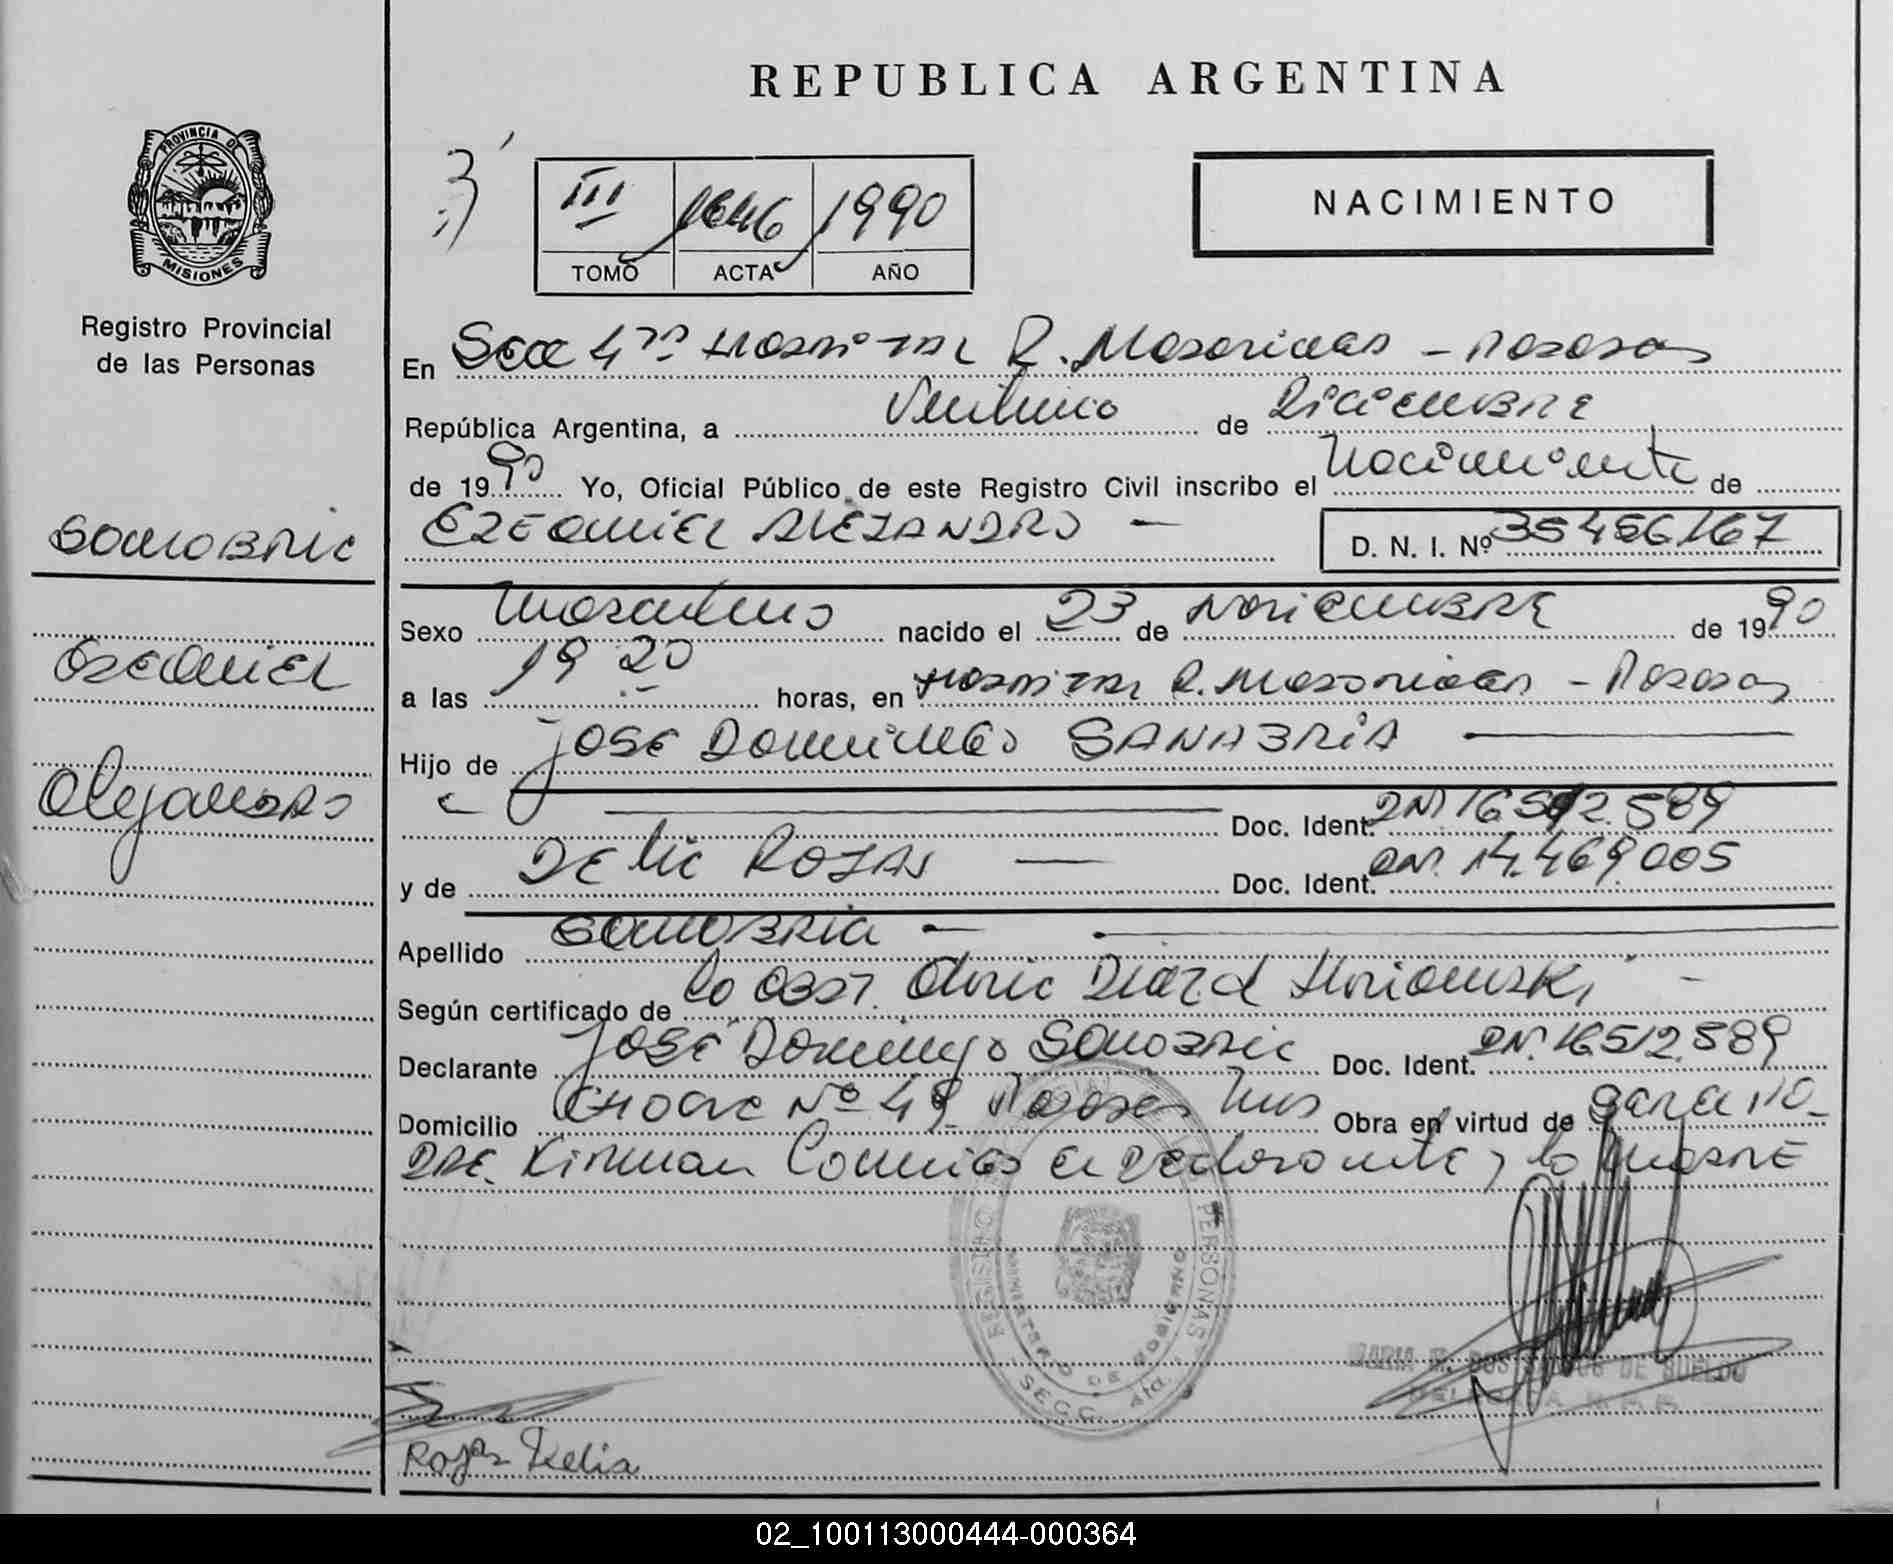 REPUBLICA ARGENTINA
PROVINCIA DE
MISIONES
Registro Provincial
de las Personas
III 1646 1990
TOMO ACTA AÑO
NACIMIENTO
En Secc 4ta Hospital R. Madariaga - Posadas
República Argentina, a Veintiuno de Diciembre
de 1990 Yo, Oficial Público de este Registro Civil inscribo el Nacimiento de
EZEQUIEL ALEJANDRO - D. N. I. Nº 35456167
Sanabria
Ezequiel
Alejandro
Sexo Masculino nacido el 23 de Noviembre de 1990
a las 19 20 horas, en Hospital R. Madariaga - Posadas
Hijo de JOSE DOMINGO SANABRIA
Doc. Ident. DNI 16512.589
y de DELIA ROJAS Doc. Ident. DNI. 14.469005
Apellido SANABRIA
Según certificado de la Obst.
Declarante José Domingo Sanabria Doc. Ident. DNI. 16.512.589
Domicilio Nº 49 Posadas Mnes Obra en virtud de
Firman el Declarante y la Madre
REGISTRO PERSONAS
MINISTERIO DE GOBIERNO
SECC. 4ta.
MARIA DE SUELDO
Rojas Delia
02_100113000444-000364